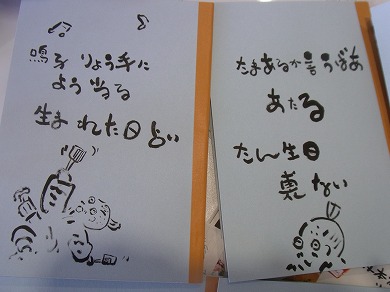 鳴子 りょう手に
よう当る
生まれた日占い
たまあるか言うばあ
あたる
たん生日
真ない